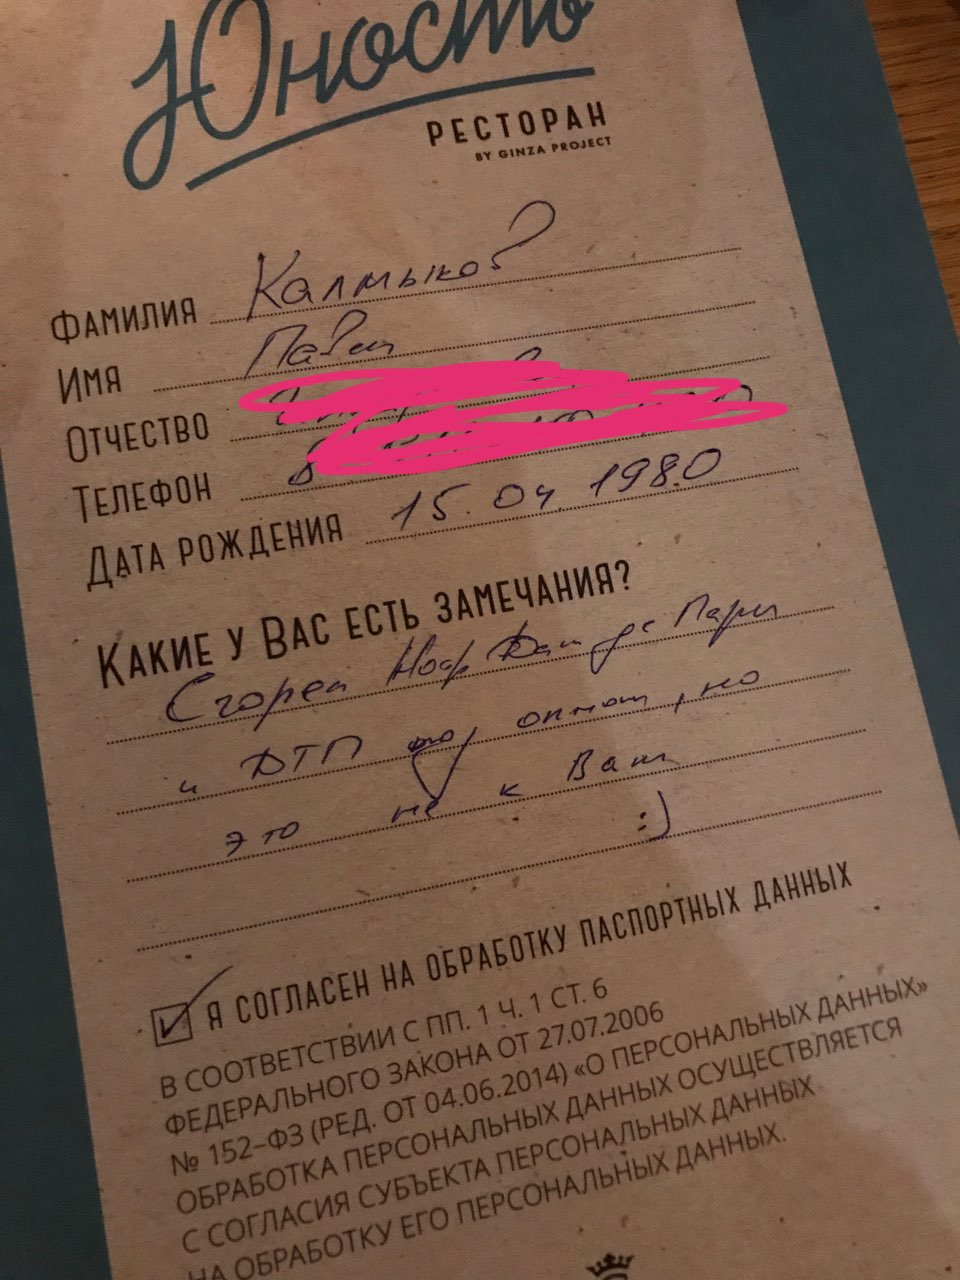 Юность
РЕСТОРАН
BY GINZA PROJECT
ФАМИЛИЯ Калмыков
ИМЯ Павел
ОТЧЕСТВО
ТЕЛЕФОН
ДАТА РОЖДЕНИЯ 15.04.1980
КАКИЕ У ВАС ЕСТЬ ЗАМЕЧАНИЯ?
Сгорел Нотр Дам де Пари
и ДТП опыт, но
это не к Вам
:)
Я СОГЛАСЕН НА ОБРАБОТКУ ПАСПОРТНЫХ ДАННЫХ
В СООТВЕТСТВИИ С ПП. 1 Ч. 1 СТ. 6
ФЕДЕРАЛЬНОГО ЗАКОНА ОТ 27.07.2006
№ 152-ФЗ (РЕД. ОТ 04.06.2014) «О ПЕРСОНАЛЬНЫХ ДАННЫХ»
ОБРАБОТКА ПЕРСОНАЛЬНЫХ ДАННЫХ ОСУЩЕСТВЛЯЕТСЯ
С СОГЛАСИЯ СУБЪЕКТА ПЕРСОНАЛЬНЫХ ДАННЫХ
НА ОБРАБОТКУ ЕГО ПЕРСОНАЛЬНЫХ ДАННЫХ.